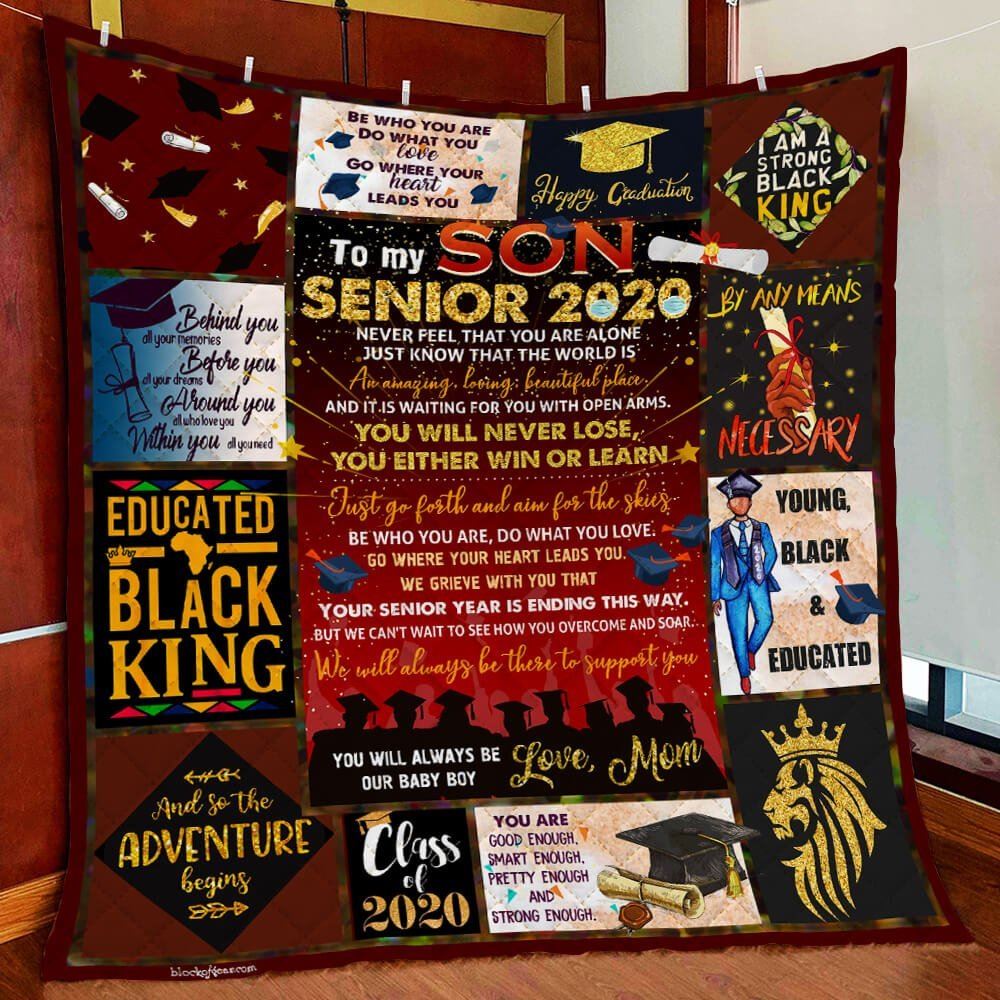 BE WHO YOU ARE
DO WHAT YOU
love
GO WHERE YOUR
heart
LEADS YOU
Happy Graduation
I AM A
STRONG
BLACK
KING
To my SON
SENIOR 2020
NEVER FEEL THAT YOU ARE ALONE
JUST KNOW THAT THE WORLD IS
An amazing, loving, beautiful place.
AND IT IS WAITING FOR YOU WITH OPEN ARMS.
YOU WILL NEVER LOSE,
YOU EITHER WIN OR LEARN
Just go forth and aim for the skies
BE WHO YOU ARE, DO WHAT YOU LOVE.
GO WHERE YOUR HEART LEADS YOU.
WE GRIEVE WITH YOU THAT
YOUR SENIOR YEAR IS ENDING THIS WAY.
BUT WE CAN'T WAIT TO SEE HOW YOU OVERCOME AND SOAR.
We will always be there to support you
YOU WILL ALWAYS BE
OUR BABY BOY
Love, Mom
Behind you
all your memories
Before you
all your dreams
Around you
all who love you
Within you all you need
BY ANY MEANS
NECESSARY
EDUCATED
BLACK
KING
YOUNG,
BLACK
&
EDUCATED
And so the
ADVENTURE
begins
Class
of
2020
YOU ARE
GOOD ENOUGH,
SMART ENOUGH,
PRETTY ENOUGH
AND
STRONG ENOUGH.
blockofgear.com